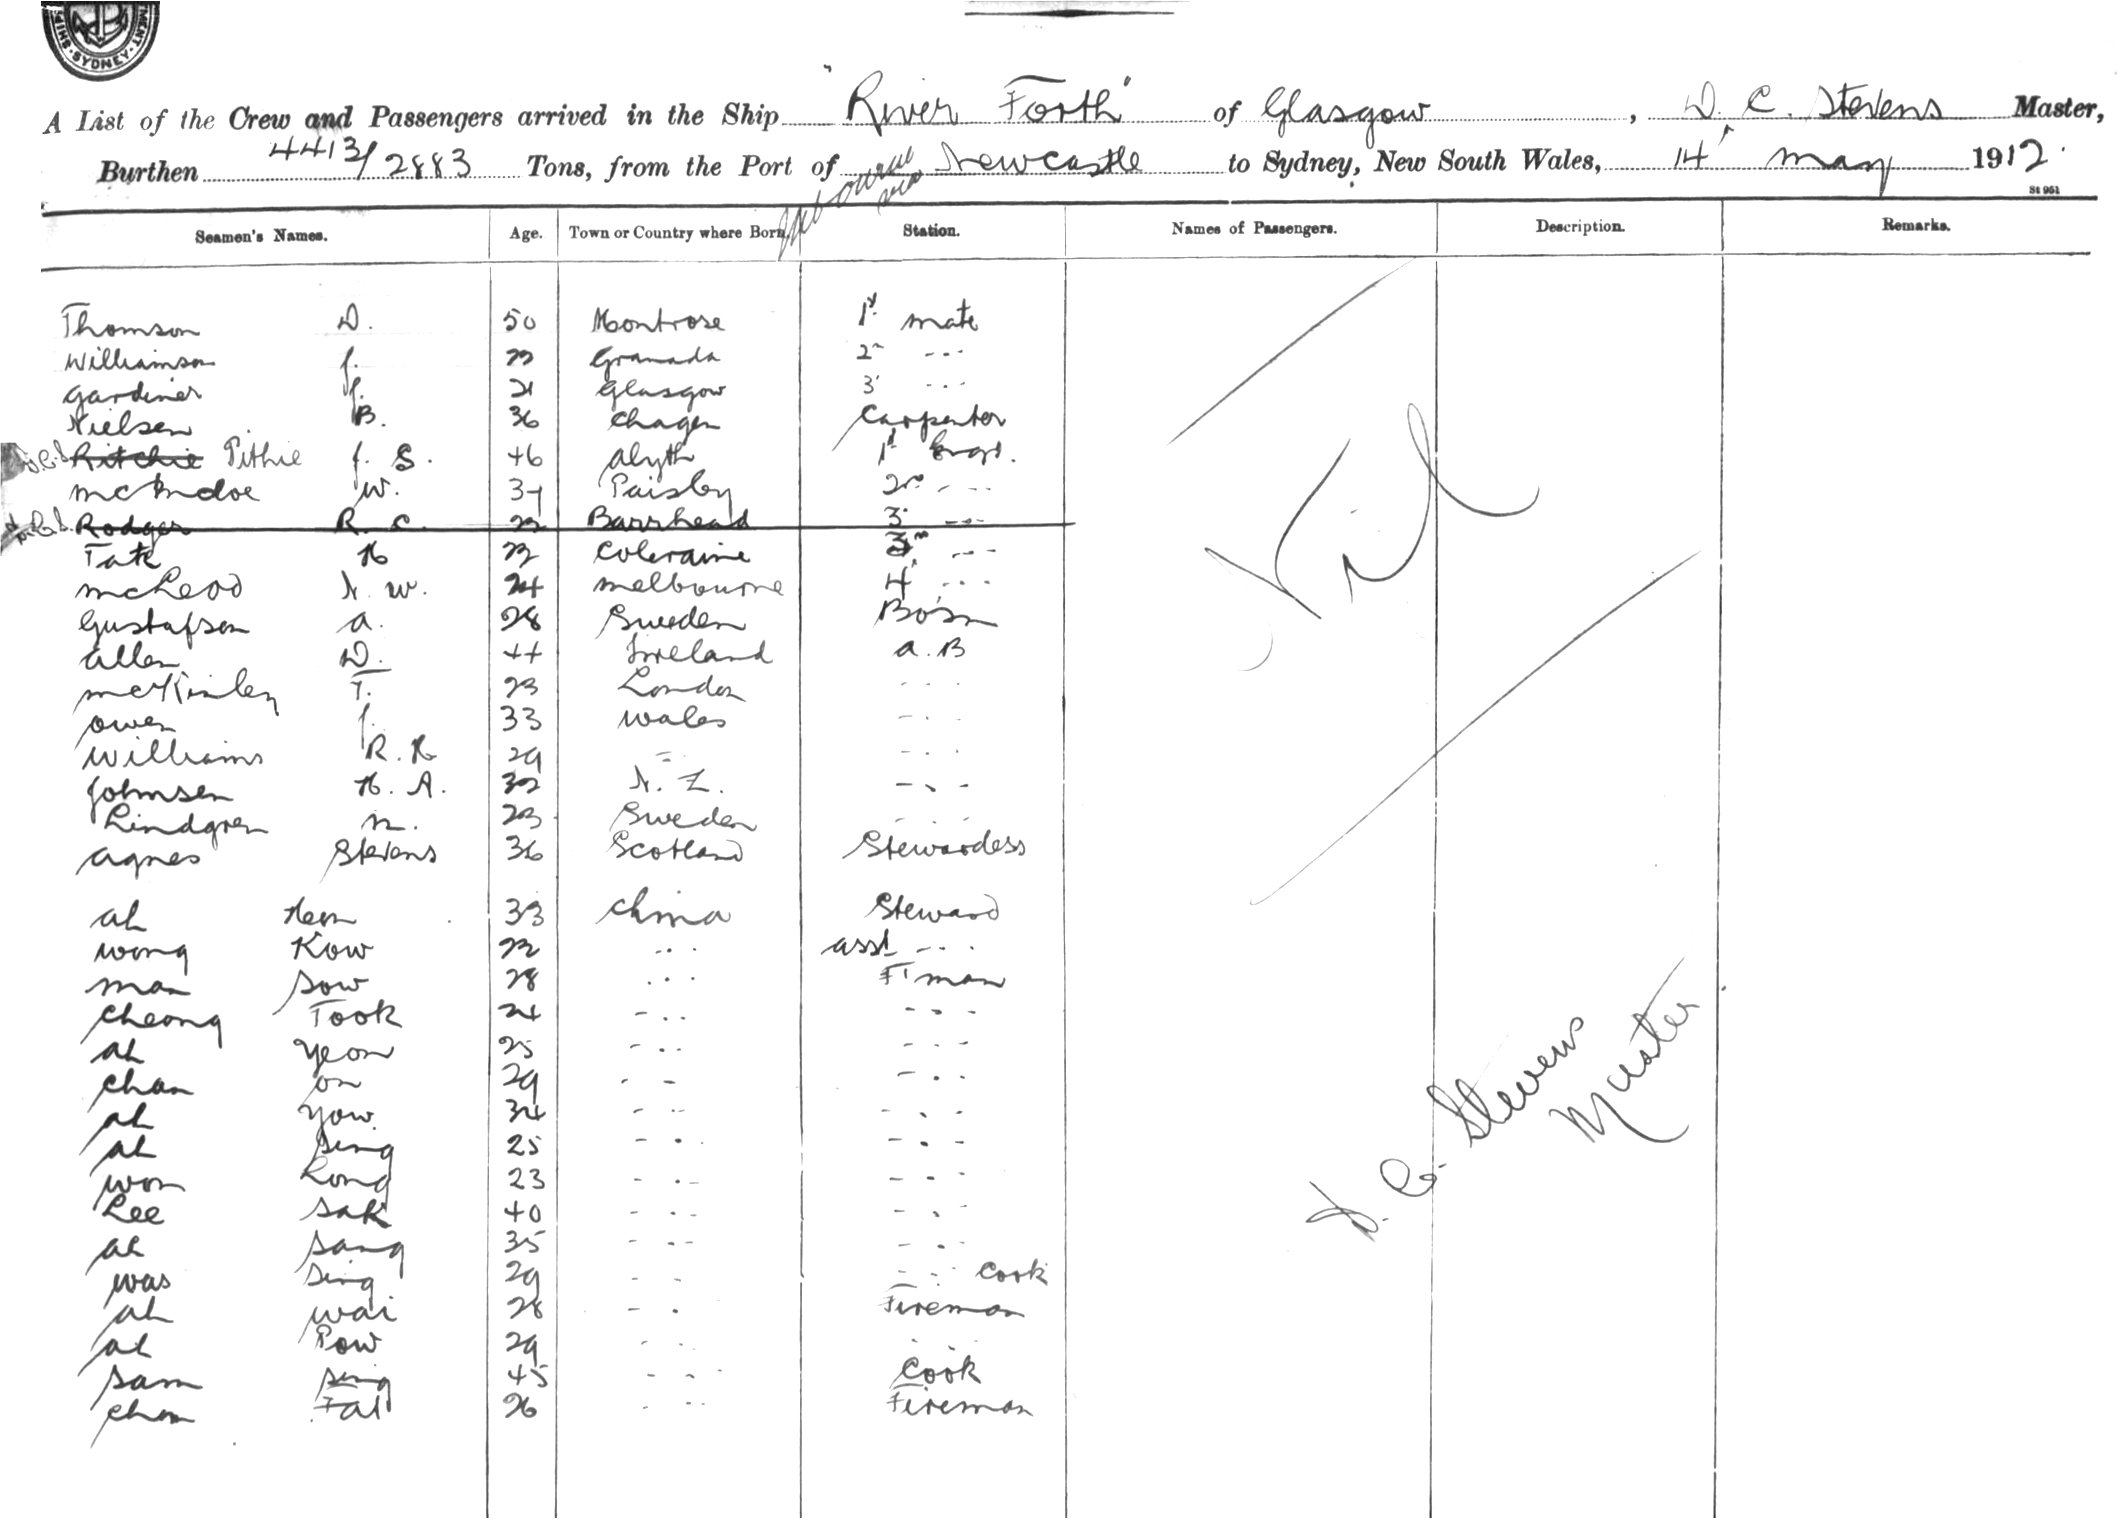 SHIP · SYDNEY · MENT
A List of the Crew and Passengers arrived in the Ship "River Forth" of Glasgow, D. C. Stevens Master,
Burthen 4413/2883 Tons, from the Port of Melbourne via Newcastle to Sydney, New South Wales, 14 May 1912.
St 951
Seamen's Names. Age. Town or Country where Born. Station. Names of Passengers. Description. Remarks.
Thomson D. 50 Montrose 1st mate
Williamson J. 22 Granada 2n - - -
Gardiner J. 21 Glasgow 3 - - -
Nielsen B. 36 Carpenter
Ritchie Pithie J. S. 46 Alyth 1st Engr.
McIndoe W. 37 Paisley 2nd - - -
Rodger R. C. 22 Barrhead 3 - - -
Tate H 22 Coleraine 3rd - - -
McLeod N. W. 24 Melbourne 4 - - -
Gustafson A. 28 Sweden Bosn
Allen D. 44 Ireland A. B
McKinley T. 23 London - - -
Owen J. 33 Wales - - -
Williams R. H 29 - - - -
Johnsen H. A. 32 N. Z. - - -
Lindgren N. 23 Sweden - - -
Agnes Stevens 36 Scotland Stewardess
Ah Hem 33 China Steward
Wong Kow 22 - - - asst - - -
Man Sow 28 - - - F'man
Cheong Took 24 - - - - - -
Ah Yeon 25 - - - - - -
Chan On 29 - - - - -
Ah Yow 34 - - - - - -
Ah Sing 25 - - - - - -
Won Long 23 - - - - - -
Lee Sak 40 - - - - - -
Ah Sang 35 - - - - - -
Was Sing 29 - - - - - Cook
Ah Wai 28 - - Fireman
Ah Pow 29 - - - - -
Sam Sing 45 - - - Cook
Chon Fat 26 - - - Fireman
Nil
D. C. Stevens
Master